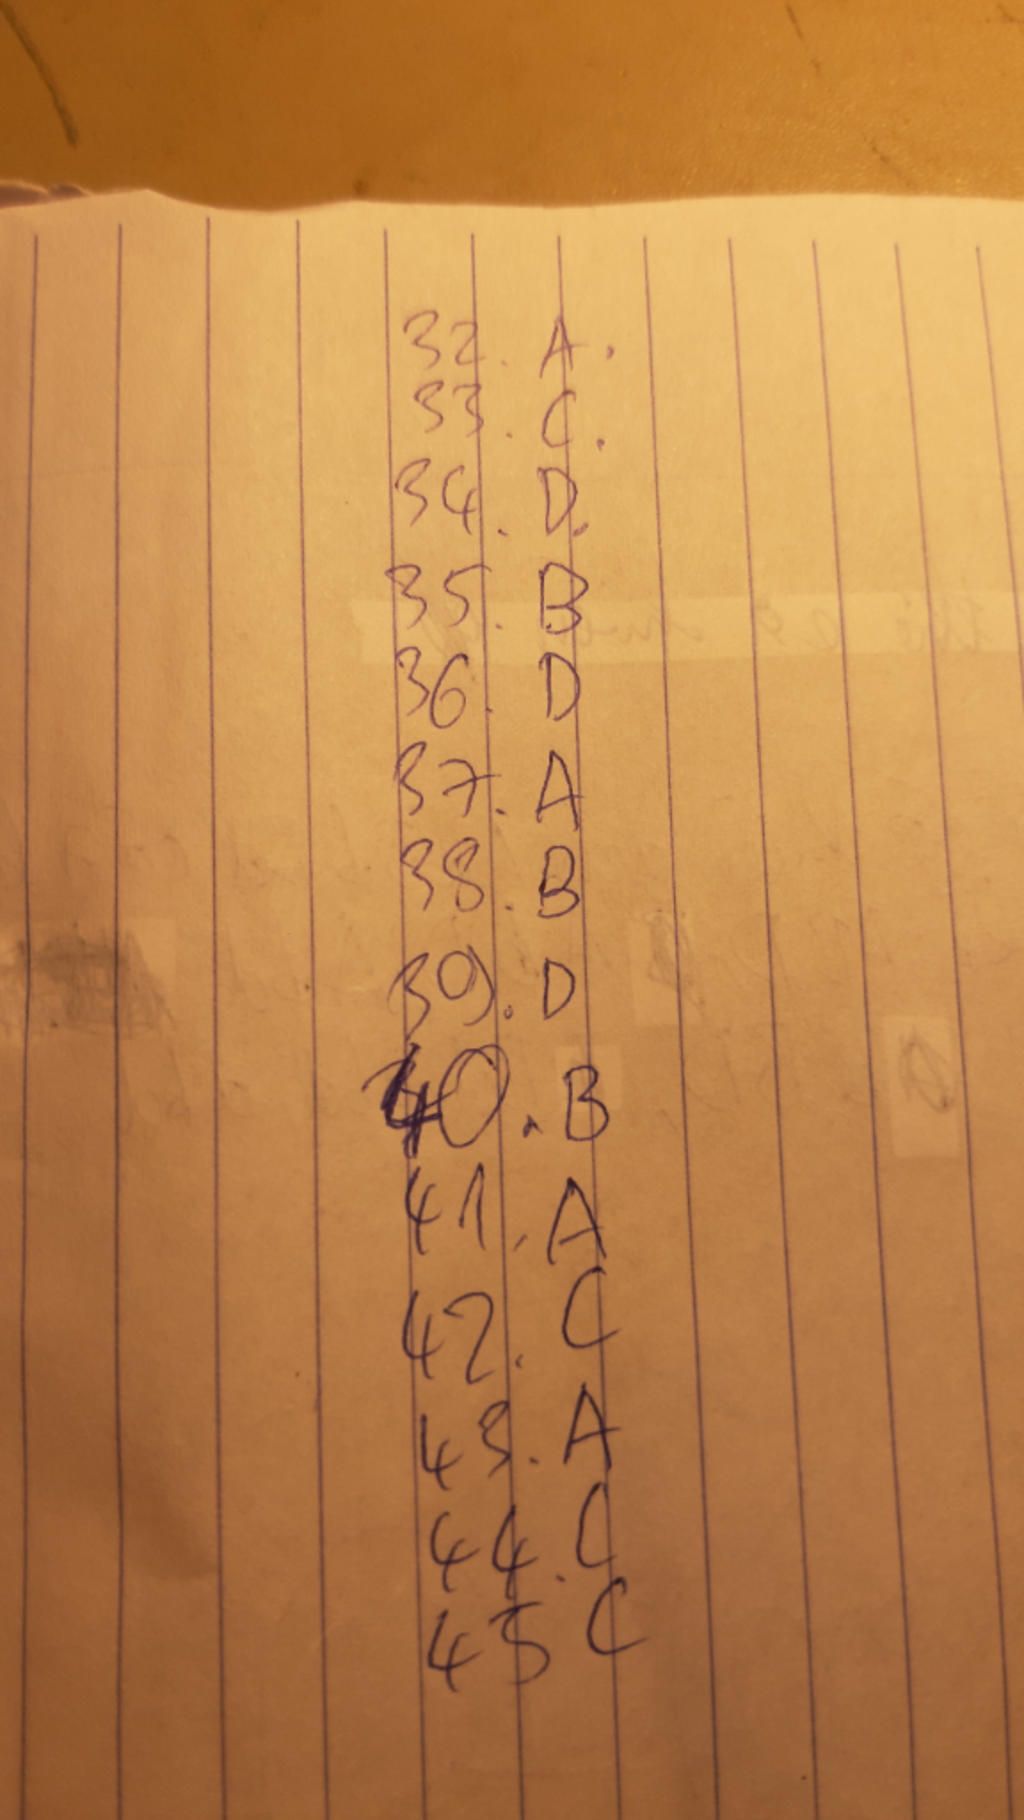 32. A.
33. C.
34. D.
35. B
36. D
37. A
38. B
39. D
40. B
41. A
42. C
43. A
44. C
45 C